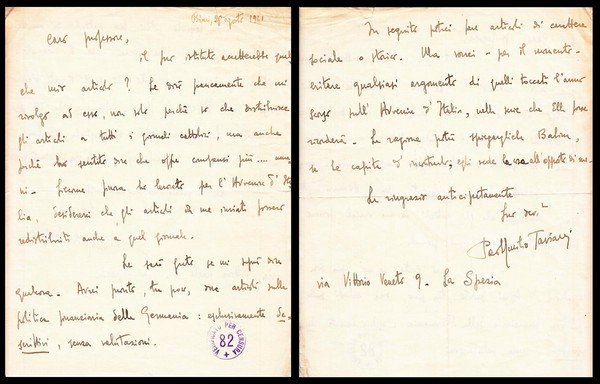 agosto 1941
Caro professore,
il suo istituto accetterebbe qual
che mio articolo? Le dirò francamente che mi
rivolgo ad esso, non solo perché so che distribuisce
gli articoli a tutti i giornali cattolici, ma anche
perché ho sentito dire che offre compensi più....
ni. Siccome finora ho lavorato per l'Avvenire d'Ita
lia, desidererei che gli articoli da me inviati fossero
redistribuiti anche a quel giornale.
Le sarò grato se mi saprà dire
qualcosa. Avrei pronto, tra poco, un articolo sulla
politica finanziaria della Germania: esclusivamente de
scrittivi, senza valutazioni.
VERIFICATO PER CENSURA
82
In seguito potrei fare articoli di carattere
sociale o storico. Ma vorrei - per il momento -
evitare qualsiasi argomento di quelli toccati l'anno
scorso sull'Avvenire d'Italia, nella serie che Ella forse
ricorderà. La ragione potrà spiegargliela
se le capita d'incontrarlo; egli vede la cosa all'opposto di me.
La ringrazio anticipatamente
Suo dev.
Paolo Emilio Taviani
via Vittorio Veneto 9. La Spezia